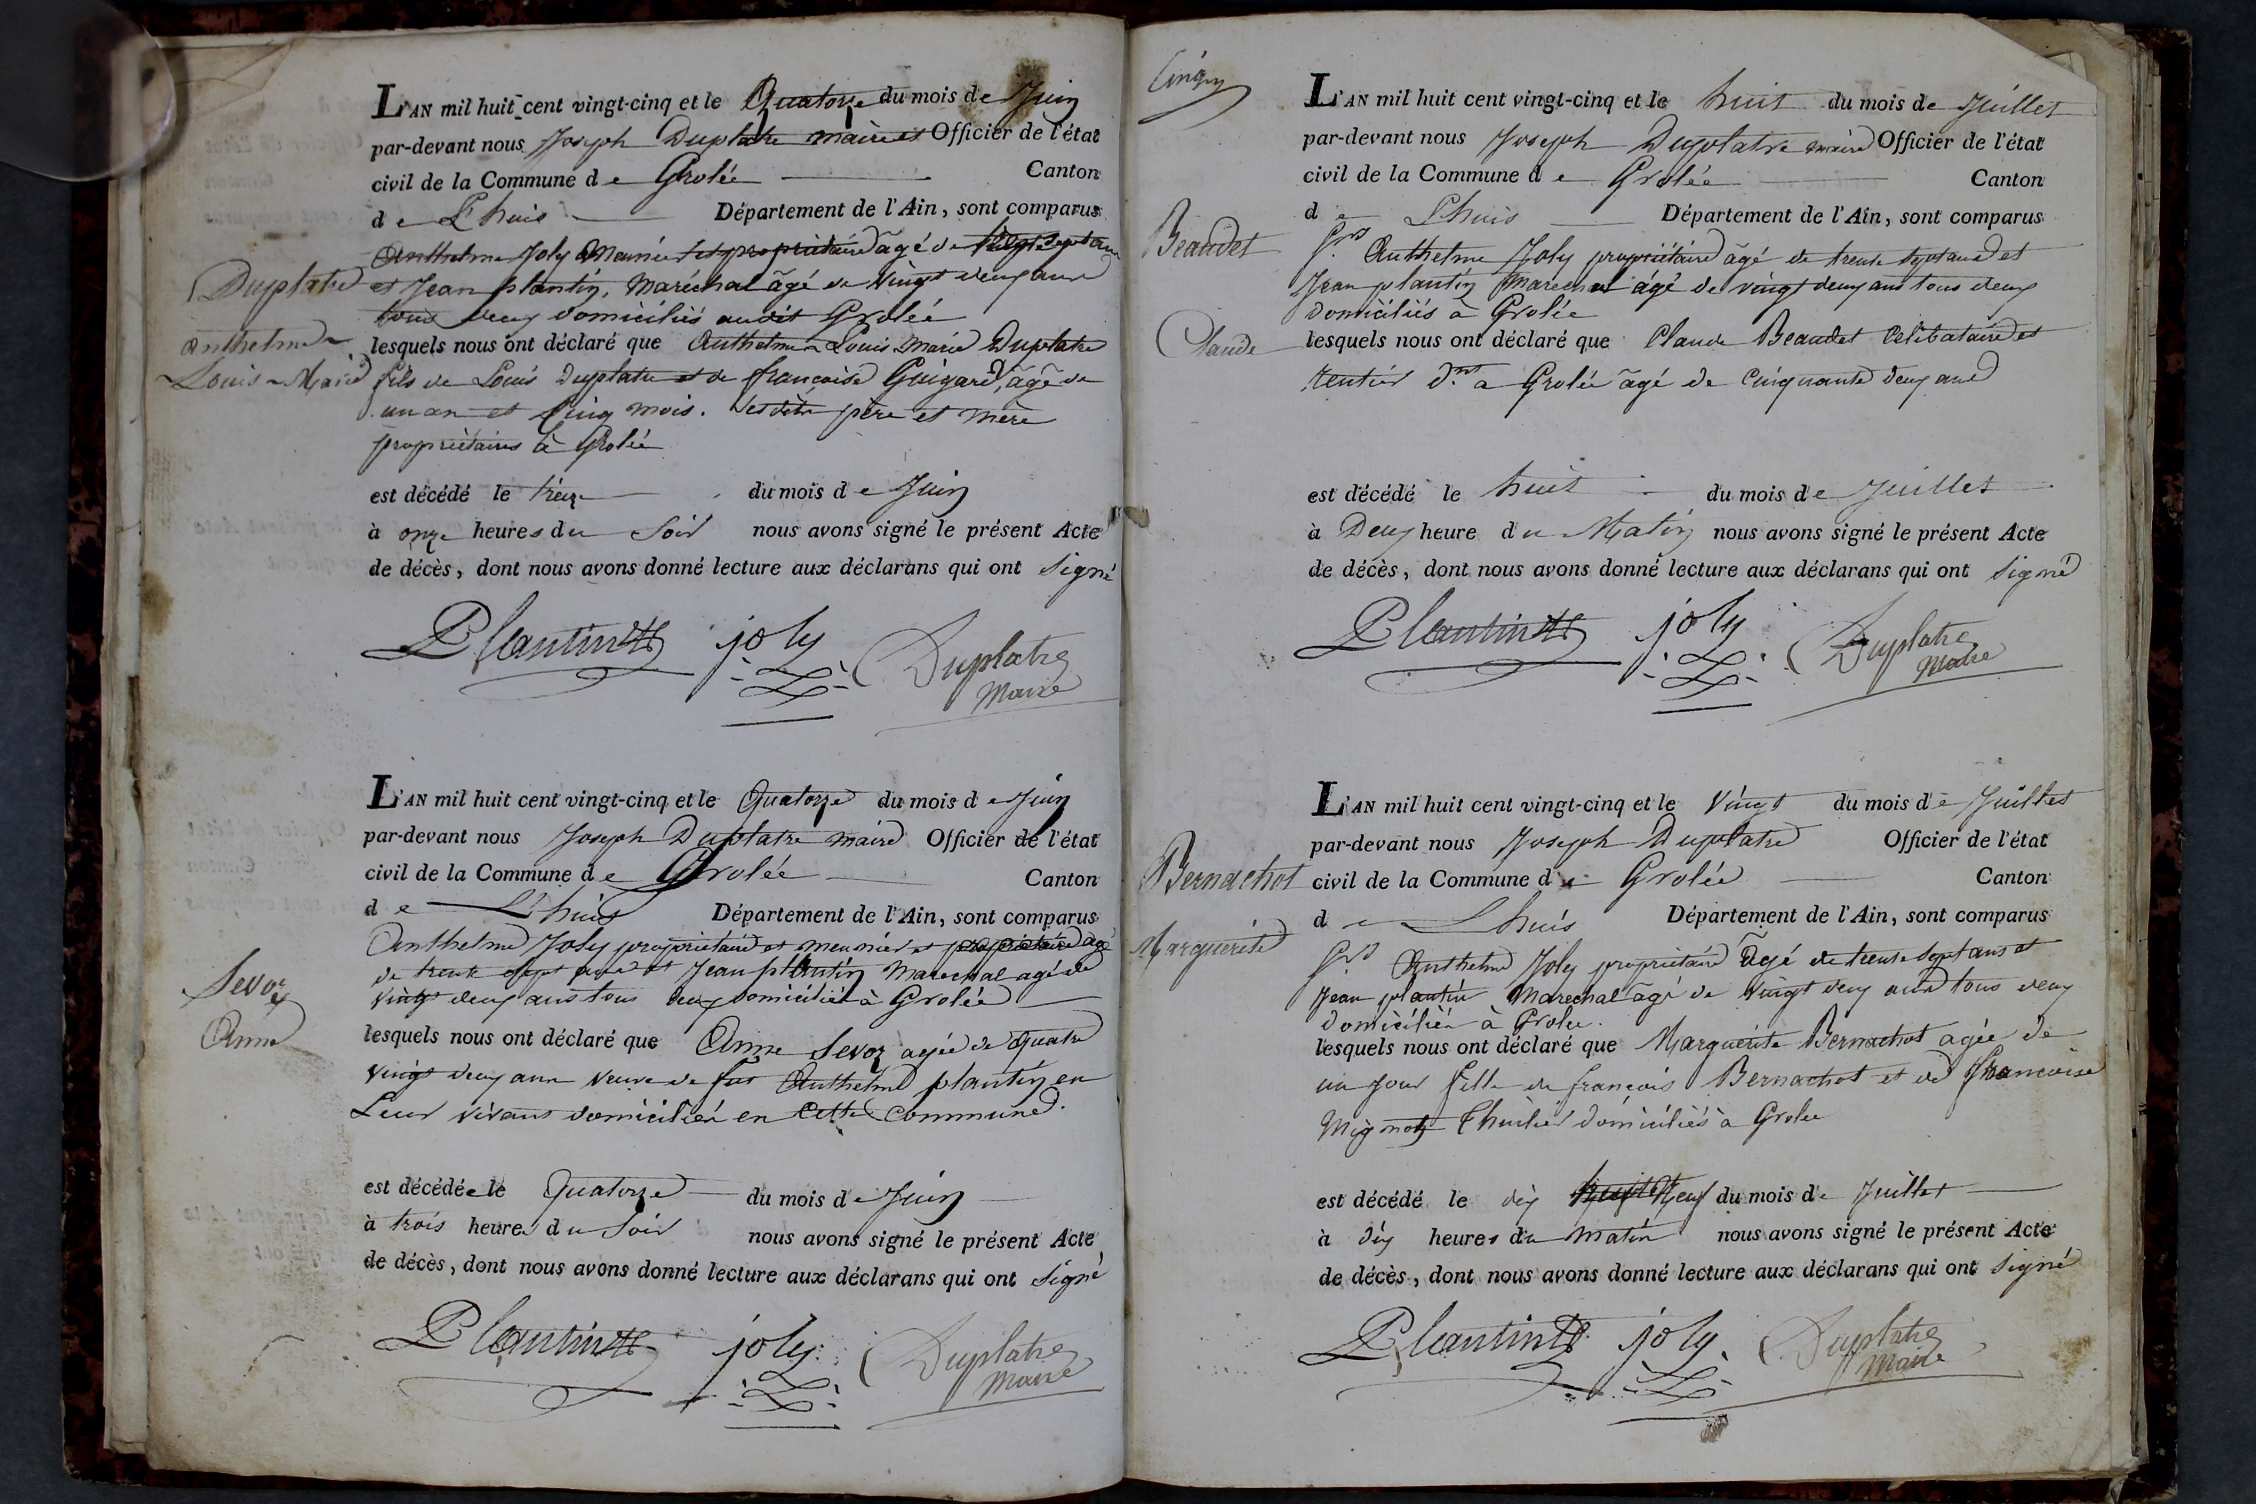 L'AN mil huit cent vingt-cinq et le Quatorze du mois de Juin
par-devant nous Joseph Duplatre maire et Officier de l'état
civil de la Commune de Grolée Canton
de L'huis Département de l'Ain, sont comparus
Anthelme Joly Meunier et propriétaire âgé de
Duplatre et Jean plantin, Maréchal âgé de vingt deux ans
tous deux domiciliés audit Grolée
Anthelme lesquels nous ont déclaré que Anthelme Louis Marie Duplatre
Louis Marie fils de Louis Duplatre et de francoise Guigard, âgé de
un an et Cinq mois. père et mère
propriètaires à Grolée
est décédé le treize du mois de Juin
à onze heures du Soir nous avons signé le présent Acte
de décès, dont nous avons donné lecture aux déclarans qui ont Signé
Plantin joly Duplatre
Maire
L'AN mil huit cent vingt-cinq et le Quatorze du mois de Juin
par-devant nous Joseph Duplatre maire Officier de l'état
civil de la Commune de Grolée Canton
de L'huis Département de l'Ain, sont comparus
Anthelme Joly propriétaire et meunier et propriétaire agé
de trente Sept ans et Jean plantin Marechal agé de
Sevoz vingt deux ans tous deux domicilié à Grolée
Anne lesquels nous ont déclaré que Anne Sevoz agée de Quatre
vingt deux ans veuve de feu Anthelme plantin en
Leur vivant domiciliés en Cette Commune.
est décédée le Quatorze du mois de Juin
à trois heures du Soir nous avons signé le présent Acte
de décès, dont nous avons donné lecture aux déclarans qui ont Signé
Plantin joly Duplatre
Maire
L'AN mil huit cent vingt-cinq et le huit du mois de Juillet
par-devant nous Joseph Duplatre maire Officier de l'état
civil de la Commune de Grolée Canton
de Lhuis Département de l'Ain, sont comparus
Beaudet Anthelme Joly propriétaire âgé de trente Sept ans et
Jean plantin Marechal âgé de vingt deux ans tous deux
Domiciliés à Grolée
Claude lesquels nous ont déclaré que Claude Beaudet Celibataire et
rentier à Grolée âgé de Cinquante deux ans
est décédé le huit du mois de Juillet
à Deux heure du Matin nous avons signé le présent Acte
de décès, dont nous avons donné lecture aux déclarans qui ont Signé
Plantin joly Duplatre
Maire
L'AN mil huit cent vingt-cinq et le Vingt du mois de Juillet
par-devant nous Joseph Duplatre Officier de l'état
Bernachot civil de la Commune de Grolée Canton
de Lhuis Département de l'Ain, sont comparus
Marguerite Anthelme Joly propriétaire âgé de trente Sept ans et
Jean plantin Marechal âgé de vingt deux ans tous deux
domiciliés à Grolée.
lesquels nous ont déclaré que Marguerite Bernachot agée de
un jour fille de francois Bernachot et de francoise
domiciliés à Grolée
est décédé le dix Neuf du mois de Juillet
à dix heures du matin nous avons signé le présent Acte
de décès, dont nous avons donné lecture aux déclarans qui ont Signé
Plantin joly Duplatre
Maire